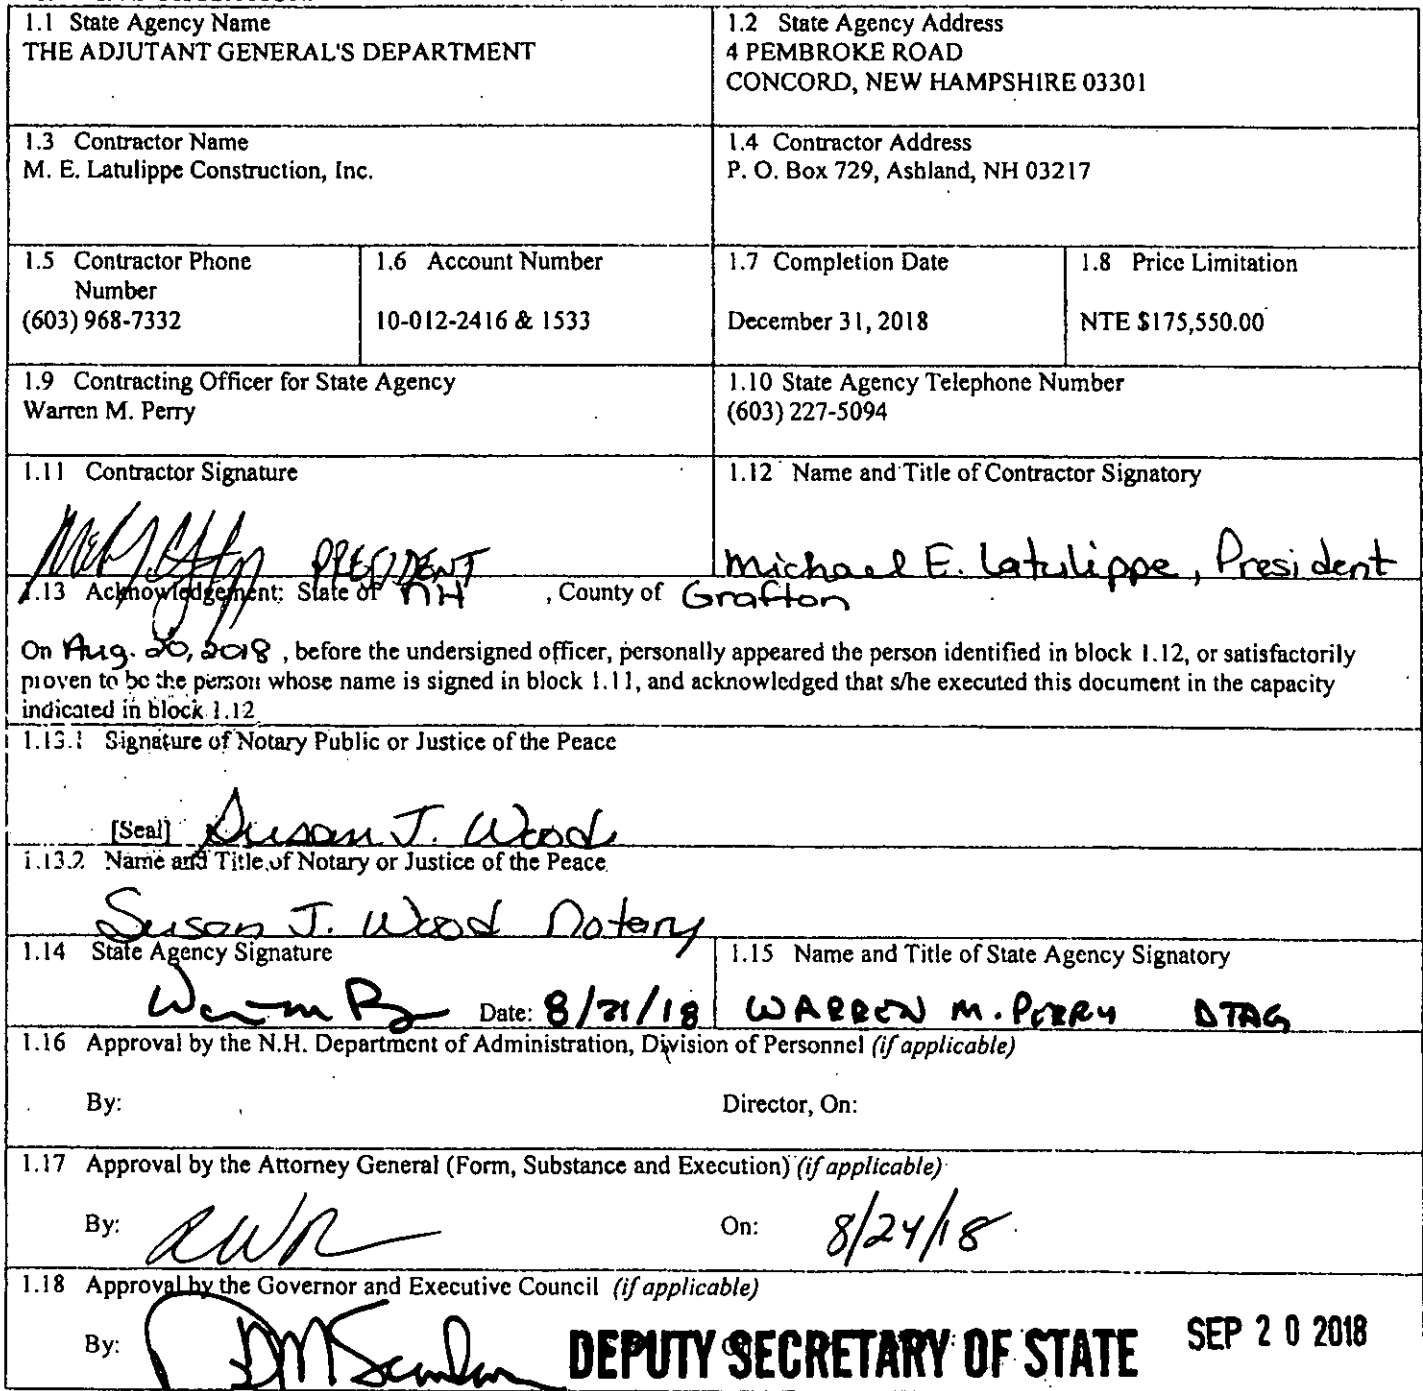 1.1 State Agency Name
THE ADJUTANT GENERAL'S DEPARTMENT
1.2 State Agency Address
4 PEMBROKE ROAD
CONCORD, NEW HAMPSHIRE 03301
1.3 Contractor Name
M. E. Latulippe Construction, Inc.
1.4 Contractor Address
P. O. Box 729, Ashland, NH 03217
1.5 Contractor Phone
Number
(603) 968-7332
1.6 Account Number
10-012-2416 & 1533
1.7 Completion Date
December 31, 2018
1.8 Price Limitation
NTE $175,550.00
1.9 Contracting Officer for State Agency
Warren M. Perry
1.10 State Agency Telephone Number
(603) 227-5094
1.11 Contractor Signature
PRESIDENT
1.12 Name and Title of Contractor Signatory
Michael E. Latulippe, President
1.13 Acknowledgement: State of NH , County of Grafton
On Aug. 20, 2018 , before the undersigned officer, personally appeared the person identified in block 1.12, or satisfactorily
proven to be the person whose name is signed in block 1.11, and acknowledged that s/he executed this document in the capacity
indicated in block 1.12
1.13.1 Signature of Notary Public or Justice of the Peace
[Seal] Susan J. Wood
1.13.2 Name and Title of Notary or Justice of the Peace
Susan J. Wood Notary
1.14 State Agency Signature
Date: 8/21/18
1.15 Name and Title of State Agency Signatory
WARREN M. PERRY DTAG
1.16 Approval by the N.H. Department of Administration, Division of Personnel (if applicable)
By:
Director, On:
1.17 Approval by the Attorney General (Form, Substance and Execution) (if applicable)
By:
On: 8/24/18
1.18 Approval by the Governor and Executive Council (if applicable)
By:
DEPUTY SECRETARY OF STATE SEP 20 2018